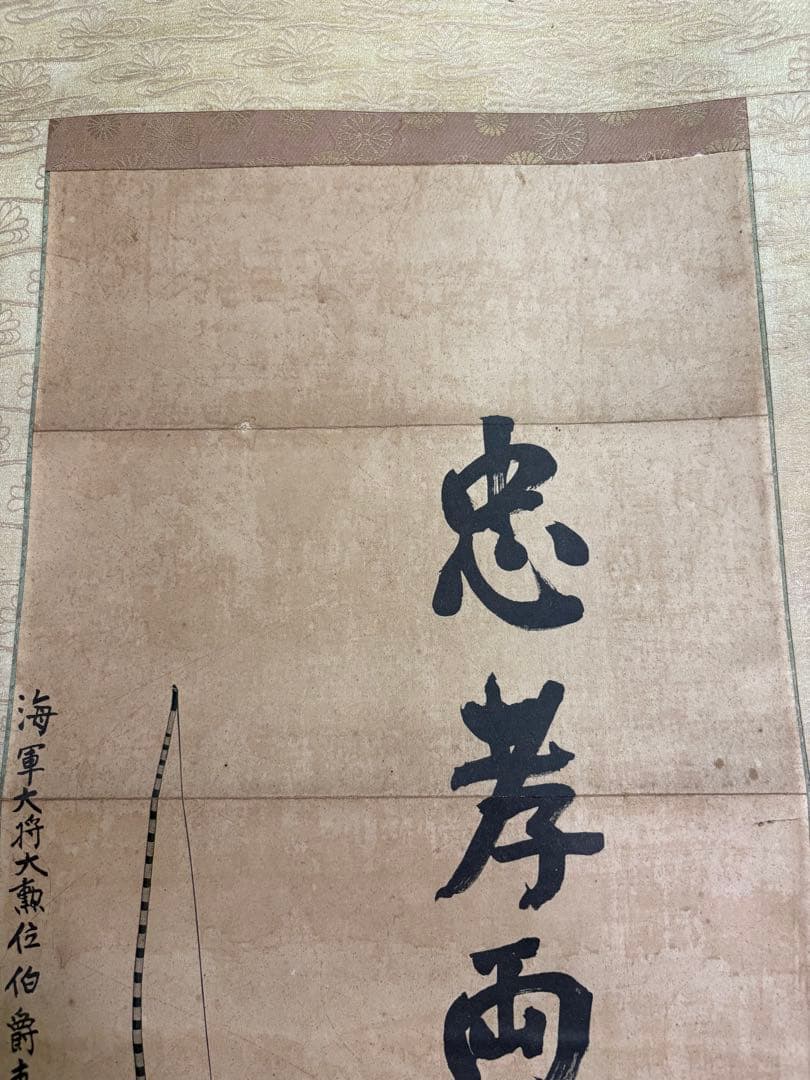 忠孝両
海軍大将大勲位伯爵